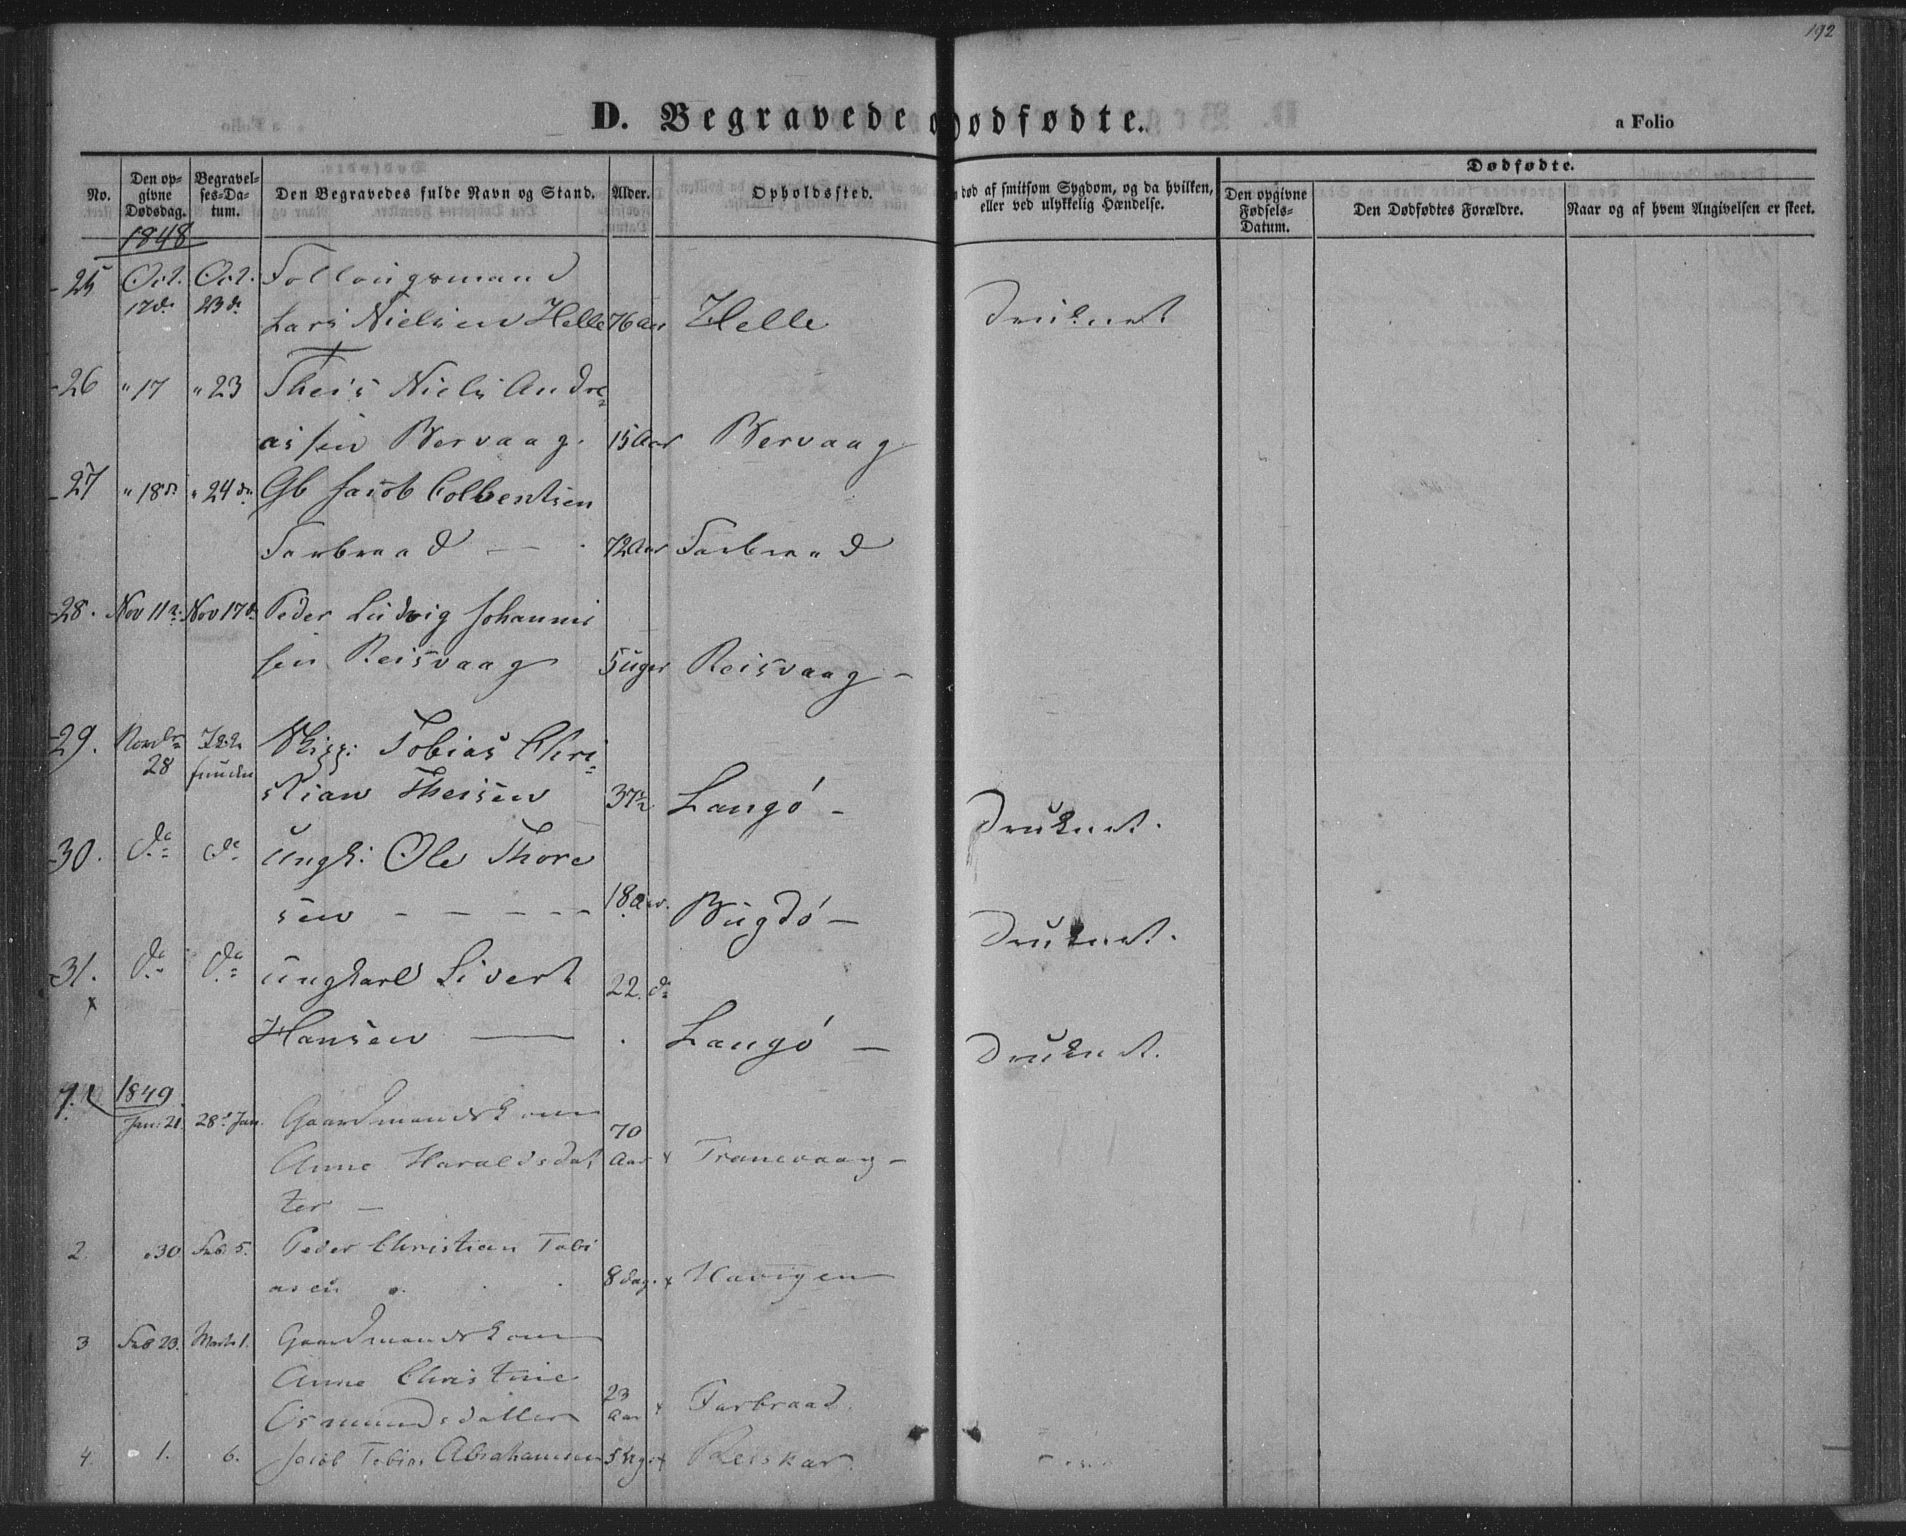 192
D. Begravede og Dødfødte.
a Folio
No.
Den opgivne Dødsdag.
Begravelses-Datum.
Den Begravedes fulde Navn og Stand.
Alder.
Opholdssted.
død af smitsom Sygdom, og da hvilken, eller ved ulykkelig Hændelse.
Dødfødte.
Den opgivne Fødsels-Datum.
Den Dødfødtes Forældre.
Naar og af hvem Angivelsen er skeet.
1848
25 Oct. 17de Oct. 23de
Lars Nielsen Helle 76 Aar Helle Druknet
26 " 17 " 23 Theis Niels Andre-
assen Bervaag. 15 Aar Bervaag
27 " 18de " 24de Gb Jacob Colbentsen
Farbraad 72 Aar Farbraad
28. Nov 11te Nov 17de Peder Ludvig Johannes
sen Reisvaag 5 Uger Reisvaag -
29. Novbr 28 Ikke funden Skipp: Tobias Chri-
stian Theisen 37½ Langö - Druknet.
30. do do Ungk: Ole Thore
sen - - - - - 18 Aar. Bugdö - Druknet.
31. do do Ungkarl Sivert 22. do
Hansen - Langö - Druknet.
1849
1. Jan: 21 28de Jan. Gaardmandskone
Anne Haraldsdat 70 Aar Tranevaag -
ter -
2. " 30 Feb. 5. Peder Christian Tobi
asen 8 Dag. Havigen
3 Feb 23. Marts 1. Gaardmandskone
Anne Christine
Osmundsdatter 23 Aar Farbraad.
4. 1. 6. Jacob Tobias Abrahamsen 5 Reiskar.